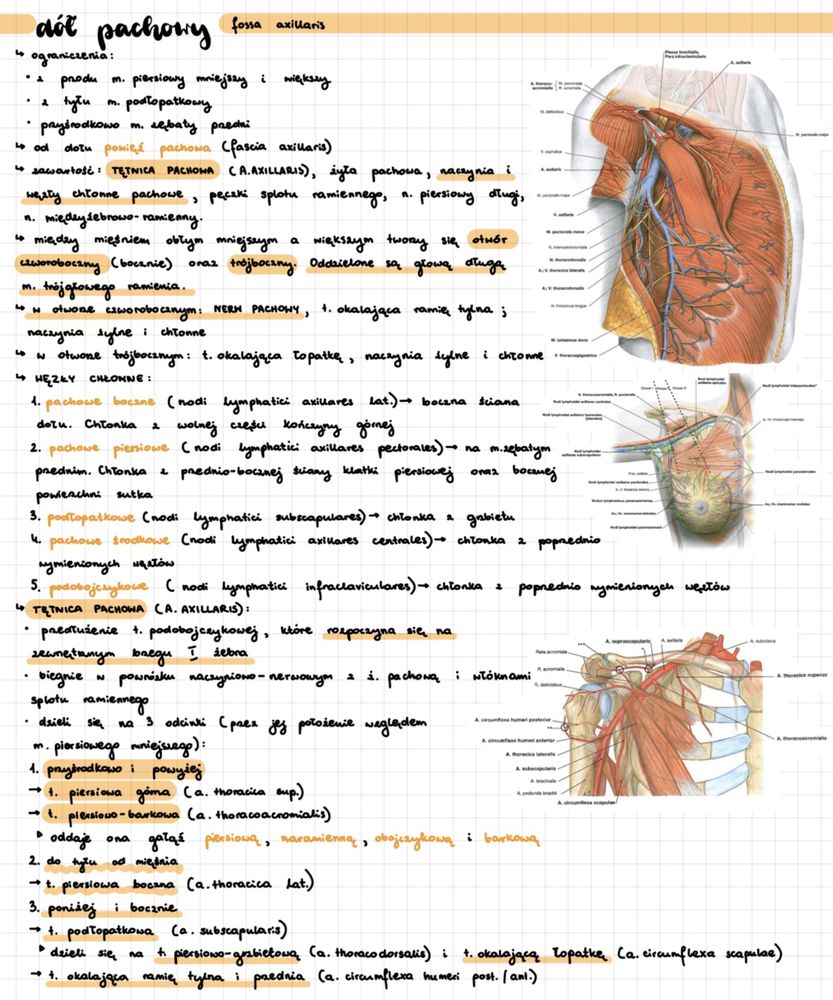 dół pachowy fossa axillaris
↳ ograniczenia:
• z przodu m. piersiowy mniejszy i większy
• z tyłu m. podłopatkowy
• przyśrodkowo m. zębaty przedni
↳ od dołu powięź pachowa (fascia axillaris)
↳ zawartość: TĘTNICA PACHOWA (A.AXILLARIS), żyła pachowa, naczynia i
węzły chłonne pachowe, pęczki splotu ramiennego, n. piersiowy długi,
n. międzyżebrowo-ramienny.
↳ między mięśniem obłym mniejszym a większym tworzy się otwór
czworoboczny (bocznie) oraz trójboczny. Oddzielone są głową długą
m. trójgłowego ramienia.
↳ w otworze czworobocznym: NERW PACHOWY, t. okalająca ramię tylna;
naczynia żylne i chłonne
↳ w otworze trójbocznym: t. okalająca łopatkę, naczynia żylne i chłonne
↳ WĘZŁY CHŁONNE:
1. pachowe boczne (nodi lymphatici axillares lat.)→ boczna ściana
dołu. Chłonka z wolnej części kończyny górnej
2. pachowe piersiowe (nodi lymphatici axillares pectorales)→ na m.zębatym
przednim. Chłonka z przednio-bocznej ściany klatki piersiowej oraz bocznej
powierzchni sutka
3. podłopatkowe (nodi lymphatici subscapulares)→ chłonka z grzbietu
4. pachowe środkowe (nodi lymphatici axillares centrales)→ chłonka z poprzednio
wymienionych węzłów
5. podobojczykowe (nodi lymphatici infraclaviculares)→ chłonka z poprzednio wymienionych węzłów
↳ TĘTNICA PACHOWA (A. AXILLARIS):
• przedłużenie t. podobojczykowej, które rozpoczyna się na
zewnętrznym brzegu I żebra
• biegnie w powrózku naczyniowo-nerwowym z ż. pachową i włóknami
splotu ramiennego
• dzieli się na 3 odcinki (przez jej położenie względem
m. piersiowego mniejszego):
1. przyśrodkowo i powyżej
→ t. piersiowa górna (a. thoracica sup.)
→ t. piersiowo-barkowa (a. thoracoacromialis)
▸ oddaje ona gałąź piersiową, naramienną, obojczykową i barkową
2. do tyłu od mięśnia
→ t. piersiowa boczna (a. thoracica lat.)
3. poniżej i bocznie
→ t. podłopatkowa (a. subscapularis)
▸ dzieli się na t. piersiowo-grzbietową (a. thoracodorsalis) i t. okalającą łopatkę (a. circumflexa scapulae)
→ t. okalająca ramię tylna i przednia (a. circumflexa humeri post./ant.)
Plexus brachialis,
Pars infraclavicularis
A. axillaris
A. thoraco-
acromialis
R. acromialis
M. deltoideus
M. pectoralis major
V. cephalica
A. axillaris
M. pectoralis major
V. axillaris
M. pectoralis minor
N. intercostobrachialis
N. thoracodorsalis
A.; V. thoracica lateralis
A.; V. thoracodorsalis
N. thoracicus longus
M. latissimus dorsi
V. thoracoepigastrica
A. suprascapularis
A. axillaris
A. subclavia
Rete acromiale
R. acromialis
R. deltoideus
A. thoracica superior
A. circumflexa humeri posterior
A. circumflexa humeri anterior
A. thoracoacromialis
A. thoracica lateralis
A. subscapularis
A. brachialis
A. profunda brachii
A. circumflexa scapulae